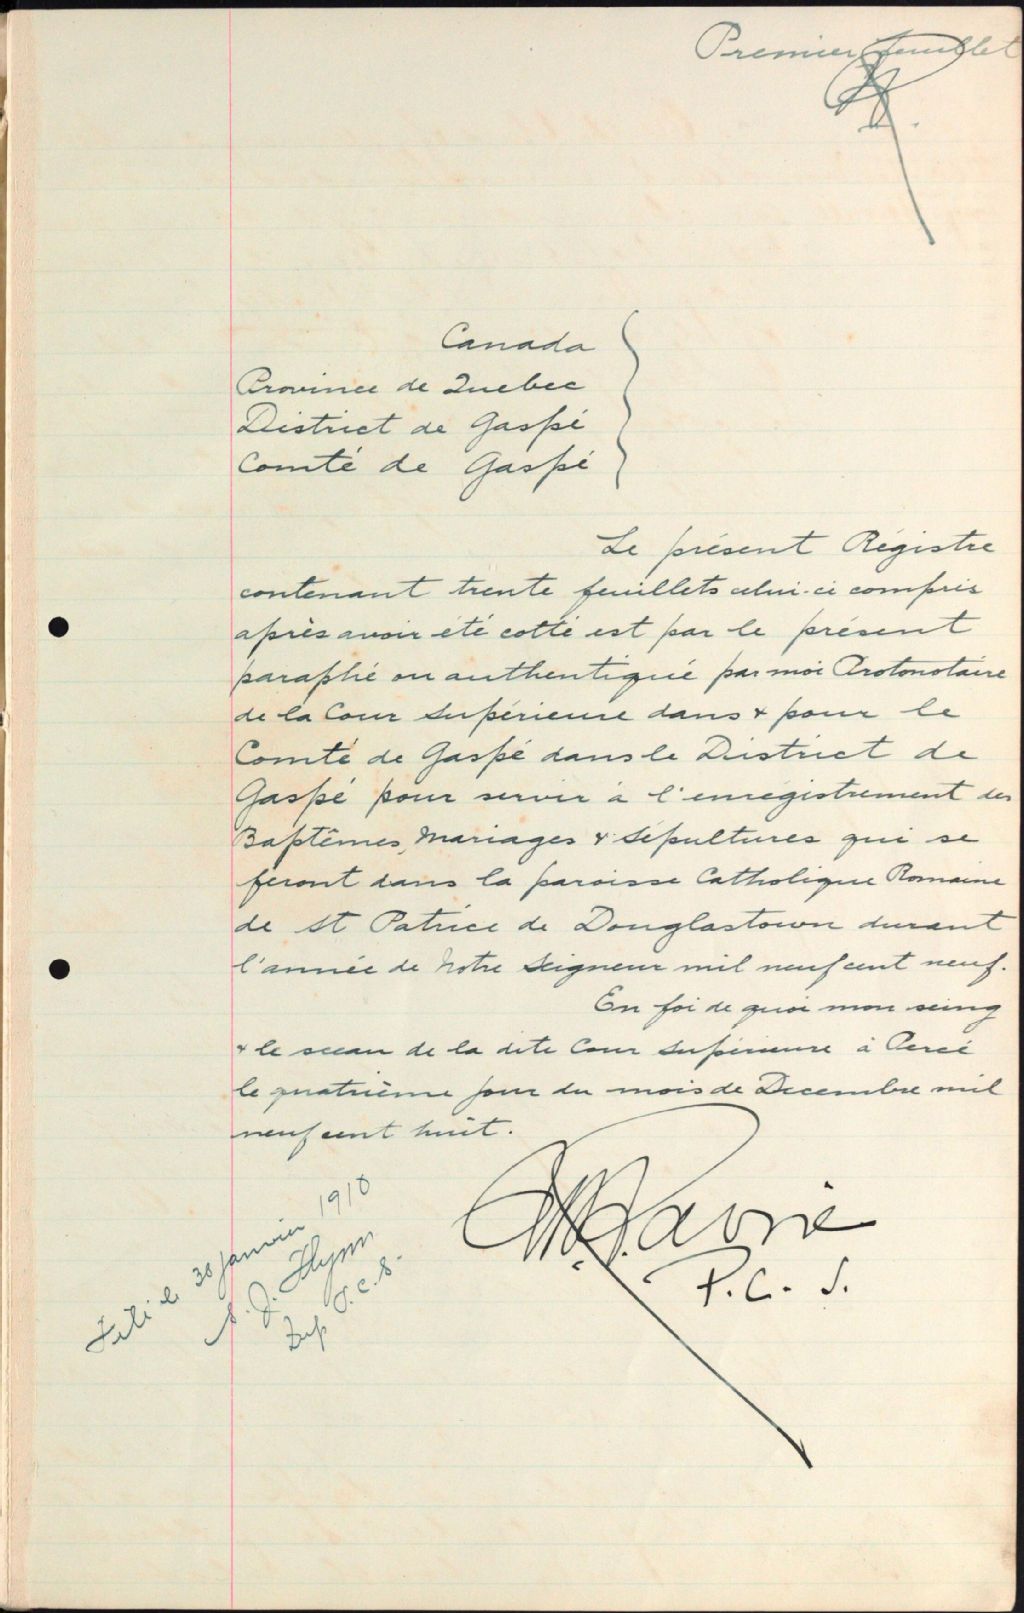 Premier feuillet
Canada
Province de Quebec
District de Gaspé
Comté de Gaspé
Le présent Régistre
contenant trente feuillets celui-ci compris
après avoir été cotté est par le présent
paraphé ou authentiqué par moi Protonotaire
de la Cour Supérieure dans & pour le
Comté de Gaspé dans le District de
Gaspé pour servir à l'enregistrement des
Baptêmes, Mariages & Sépultures qui se
feront dans la paroisse Catholique Romaine
de St Patrice de Douglastown durant
l'année de Notre Seigneur mil neuf cent neuf.
En foi de quoi mon seing
& le sceau de la dite Cour Supérieure à Percé
le quatrième jour du mois de Decembre mil
neuf cent huit.
Lavoie
P.C.S.
le 30 janvier 1910
J. Flynn
P.C.S.